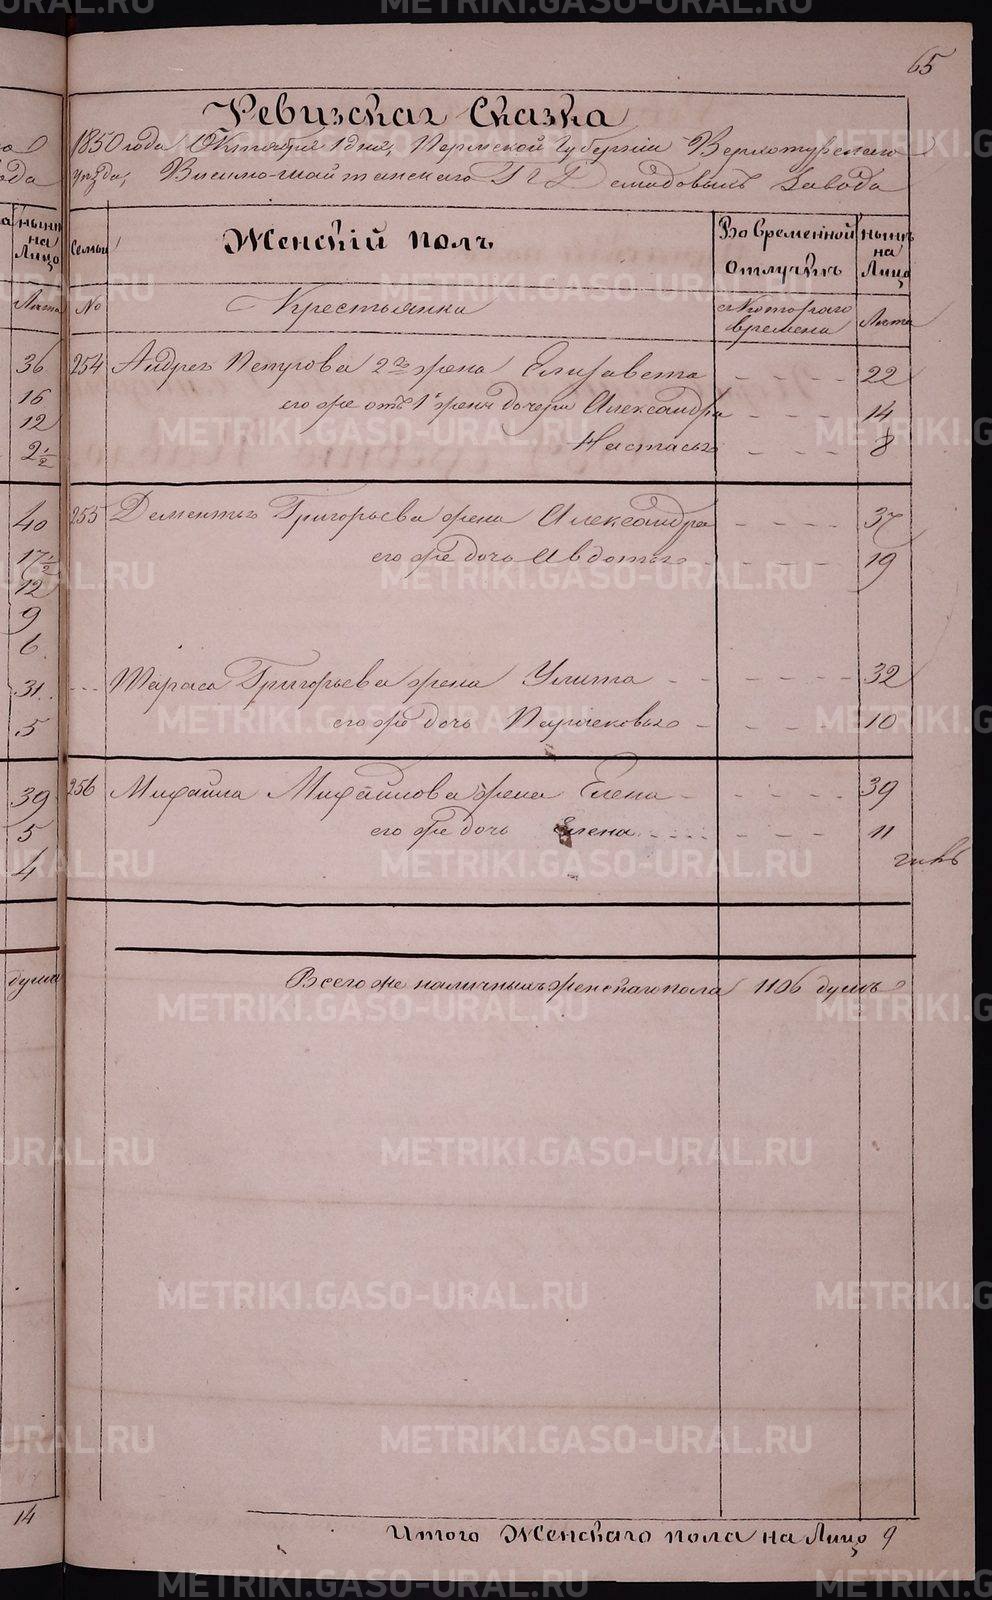 65
Ревизская Сказка
1850 года Октября 1 дня, Пермской Губернiи Верхотурскаго
уѣзда, Висимо-Шайтанскаго Г Г Демидовыхъ Завода
нынѣ на Лицо
Семьи
Женскiй полъ
Во Временной отлучкѣ
нынѣ на Лицо
Лѣта
№
Крестьянка
съ Котораго времени
Лѣта
36 254 Андрея Петрова 2я жена Елизавета 22
16 его же отъ 1й жены дочери Александра 14
12 Настасья 8
2½
40 255 Дементья Григорьева жена Александра 37
17½ его же дочь Авдотья 19
12
9
6
31 Тараса Григорьева жена Улита 32
5 его же дочь Парасковья 10
39 256 Михайла Михайлова жена Елена 39
5 его же дочь Елена 11
4
душа Всего же наличныхъ женскаго пола 1106 душъ
14
Итого Женскаго пола на Лицо 9
METRIKI.GASO-URAL.RU